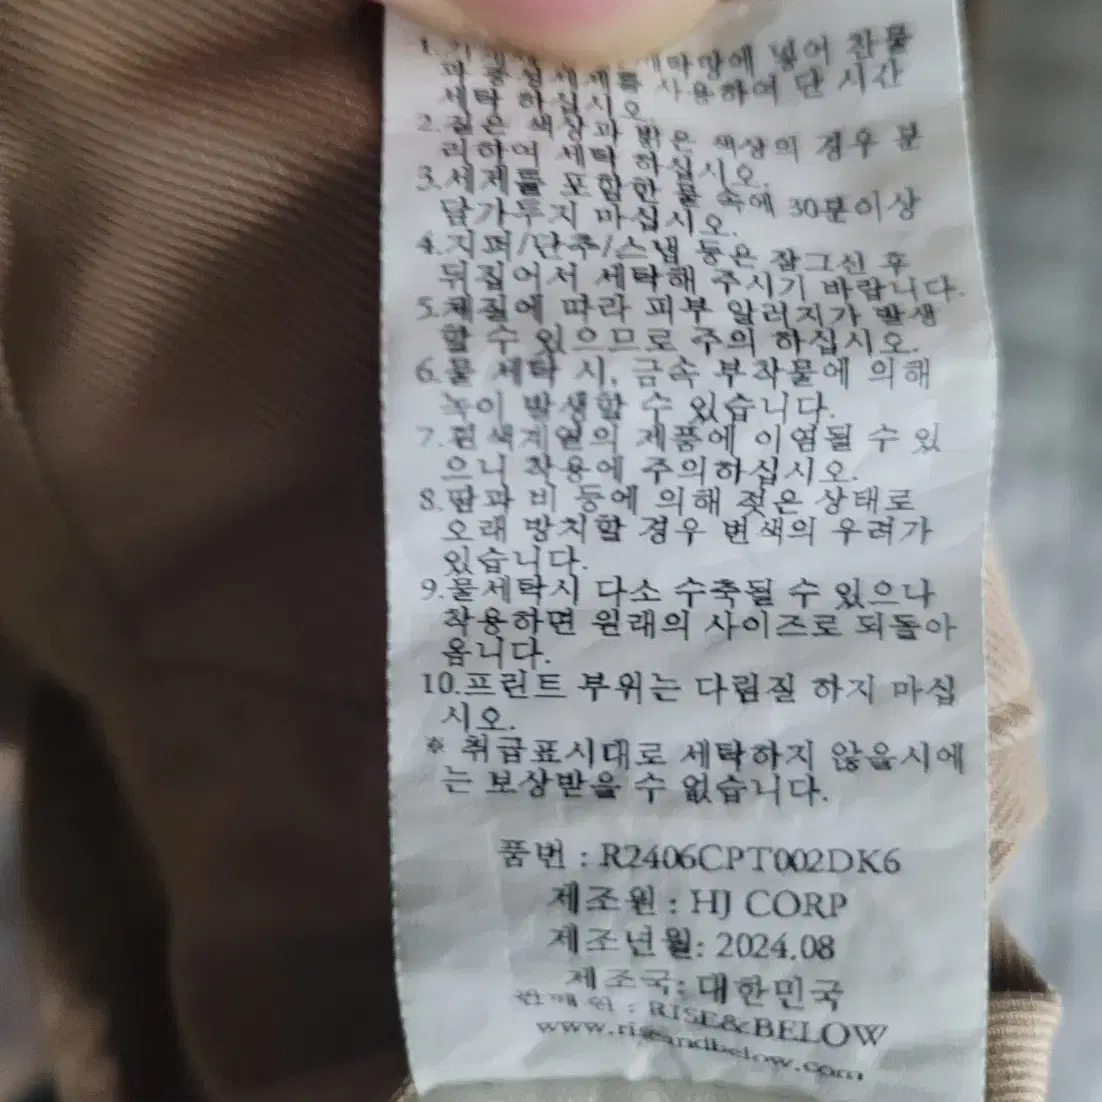 세탁망에 넣어 찬물
과 중성세제를 사용하여 단 시간
세탁 하십시오.
2.짙은 색상과 밝은 색상의 경우 분
리하여 세탁 하십시오.
3.세제를 포함한 물 속에 30분이상
담가두지 마십시오.
4.지퍼/단추/스냅 등은 잠그신 후
뒤집어서 세탁해 주시기 바랍니다.
5.체질에 따라 피부 알러지가 발생
할 수 있으므로 주의 하십시오.
6.물 세탁 시, 금속 부착물에 의해
녹이 발생할 수 있습니다.
7.흰색계열의 제품에 이염될 수 있
으니 착용에 주의하십시오.
8.땀과 비 등에 의해 젖은 상태로
오래 방치할 경우 변색의 우려가
있습니다.
9.물세탁시 다소 수축될 수 있으나
착용하면 원래의 사이즈로 되돌아
옵니다.
10.프린트 부위는 다림질 하지 마십
시오.
* 취급표시대로 세탁하지 않을시에
는 보상받을 수 없습니다.
품번 : R2406CPT002DK6
제조원 : HJ CORP
제조년월: 2024.08
제조국: 대한민국
판매원 : RISE&BELOW
www.riseandbelow.com